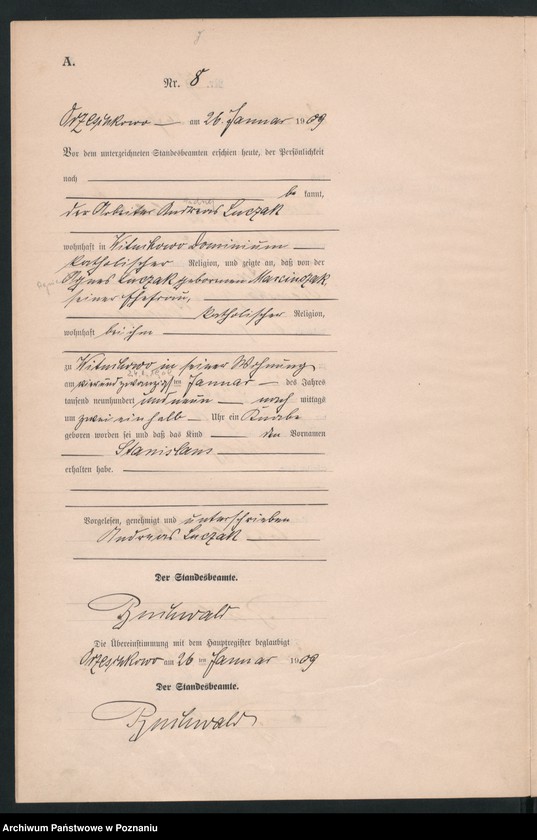 A.
Nr. 8
Orzeschkowo am 26. Januar 1909
Vor dem unterzeichneten Standesbeamten erschien heute, der Persönlichkeit
nach
be kannt,
der Arbeiter Andreas Luczak
wohnhaft in Witnikowo Dominium
katholischer Religion, und zeigte an, daß von der
Agnes Luczak geborenen Marciniak,
seiner Ehefrau,
katholischer Religion,
wohnhaft bei ihm
zu Witnikowo in seiner Wohnung
am vierundzwanzigsten Januar des Jahres
tausend neunhundert und neun nach mittags
um zwei einhalb Uhr ein Knabe
geboren worden sei und daß das Kind den Vornamen
Stanislaus
erhalten habe.
Vorgelesen, genehmigt und unterschrieben
Andreas Luczak
Der Standesbeamte.
Buchwald
Die Übereinstimmung mit dem Hauptregister beglaubigt
Orzeschkowo am 26 ten Januar 1909
Der Standesbeamte.
Buchwald
Archiwum Państwowe w Poznaniu